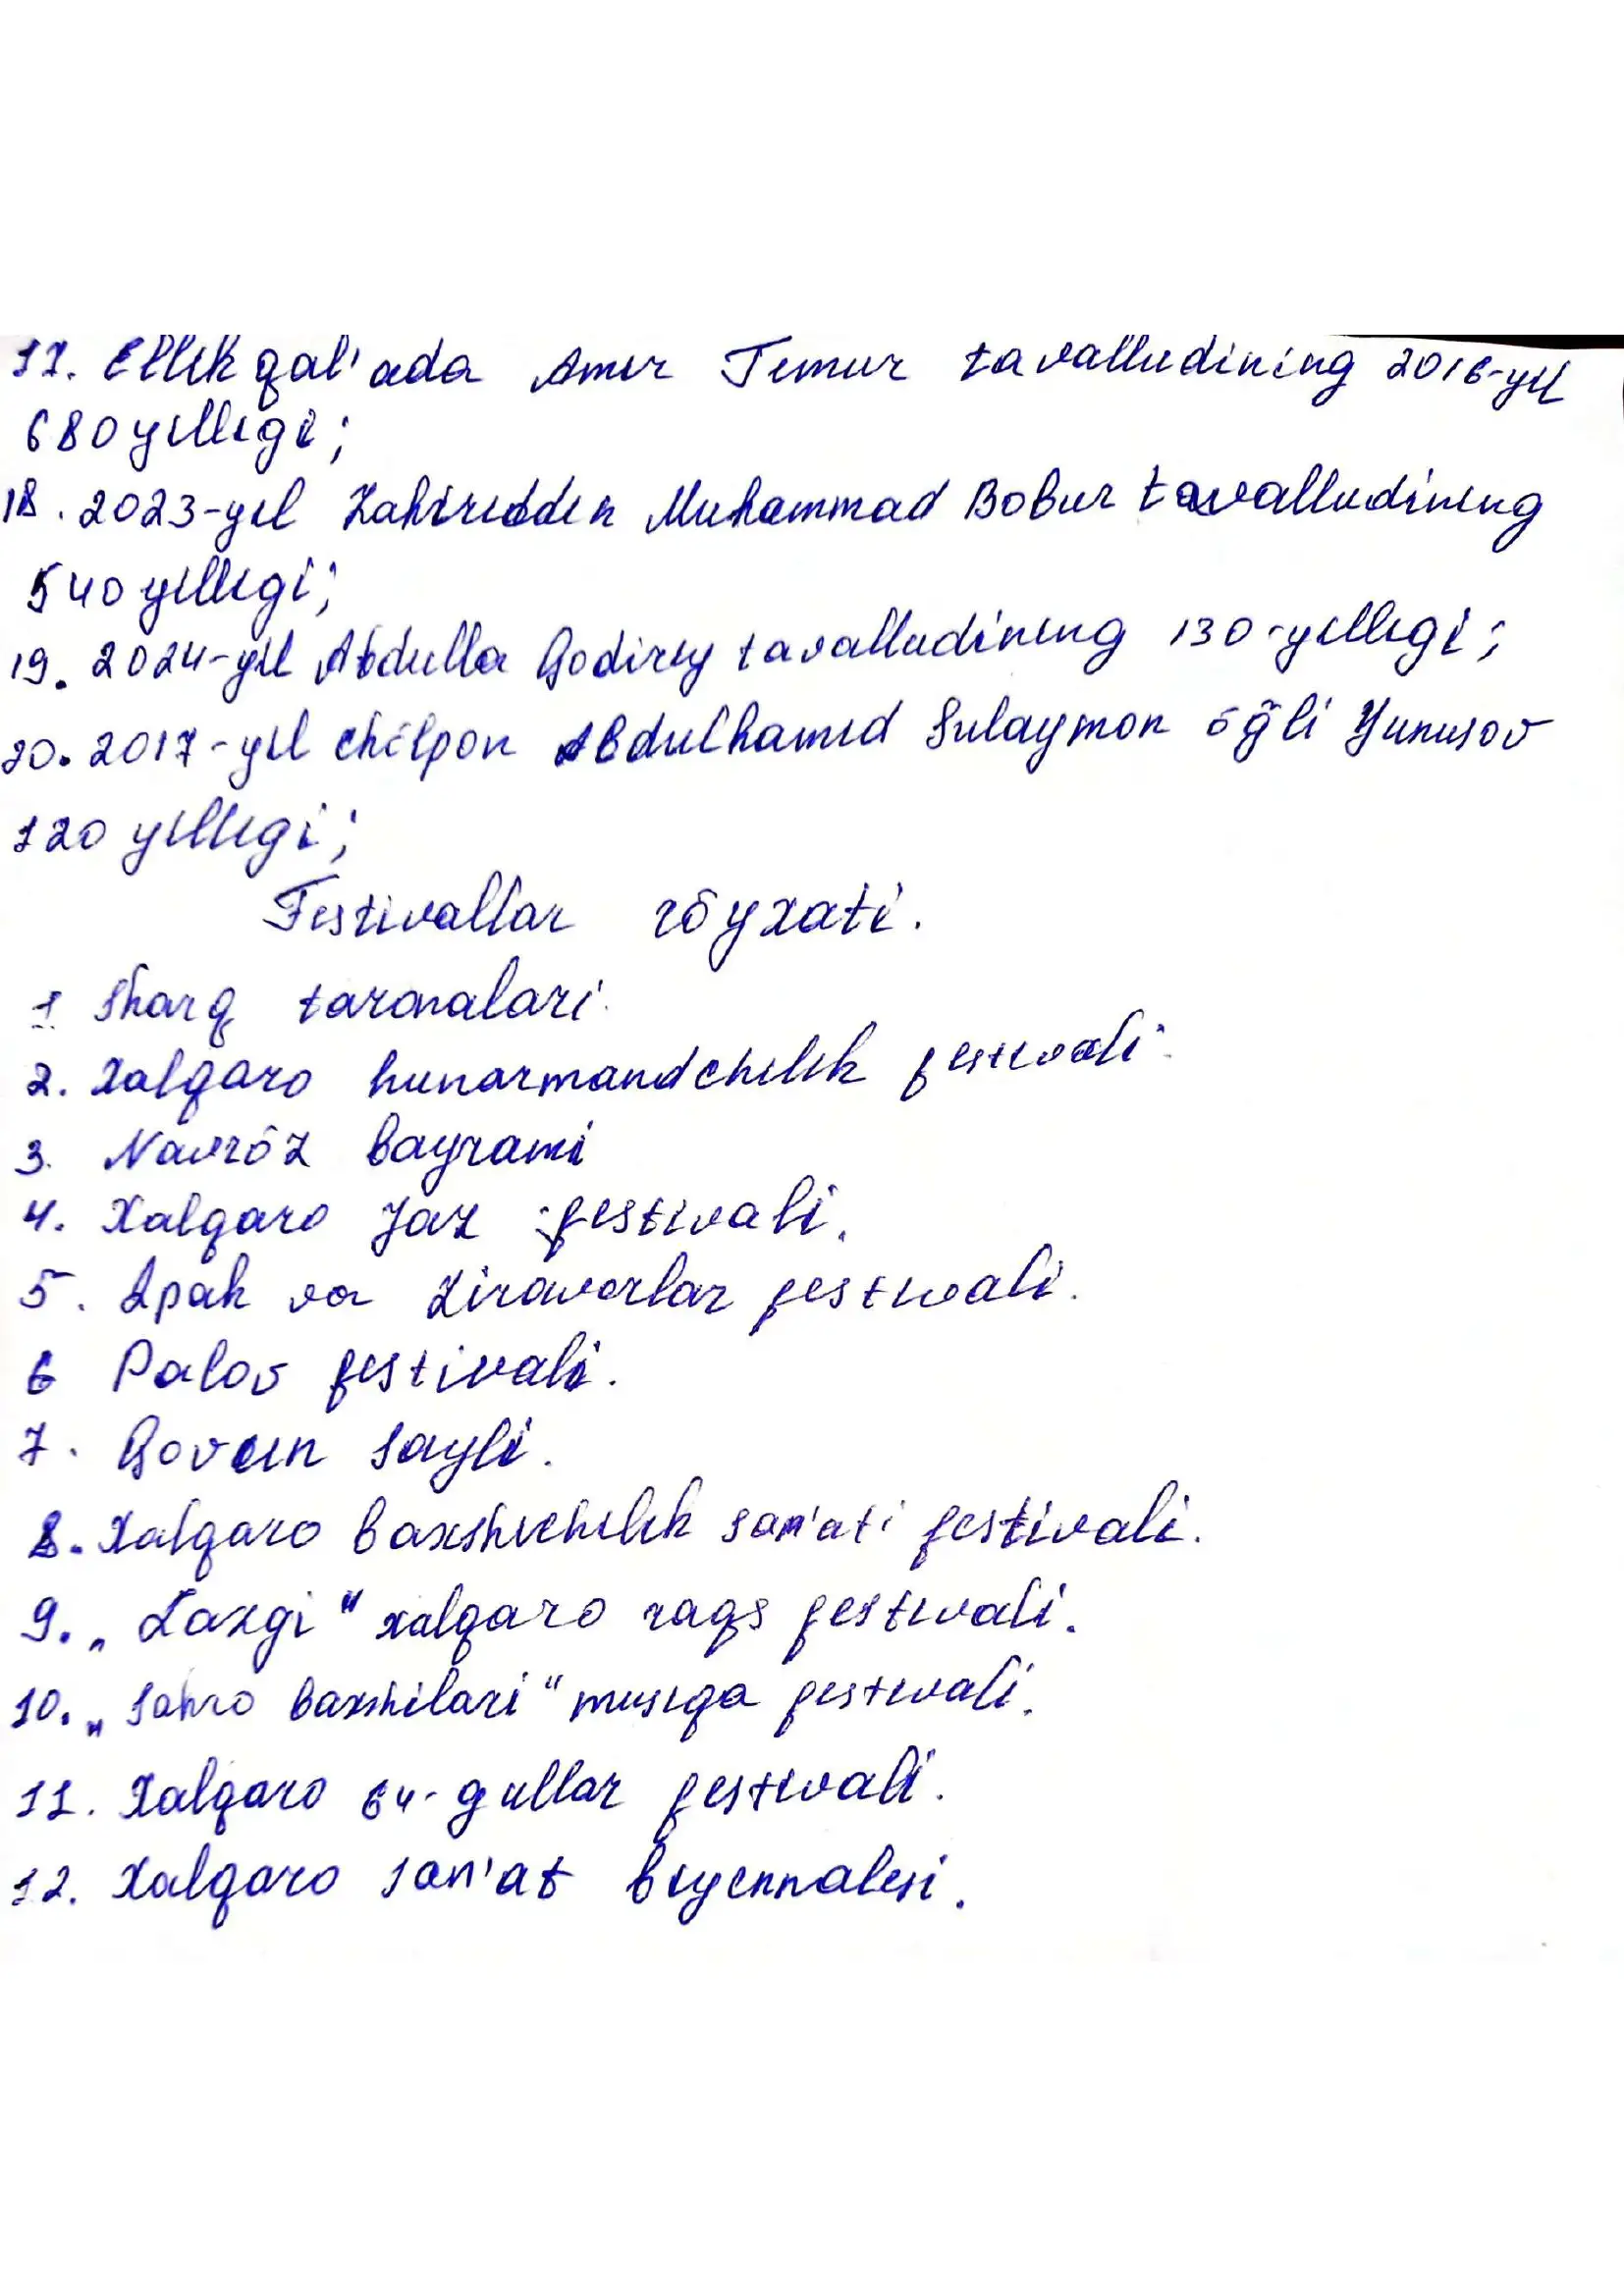 17. Ellik qal'ada Amir Temur tavalludining 2016-yil
680 yilligi;
18. 2023-yil Zahiriddin Muhammad Bobur tavalludining
540 yilligi;
19. 2024-yil Abdulla Qodiriy tavalludining 130-yilligi;
20. 2017-yil Chilpon Abdulhamid Sulaymon õğli Yunusov
120 yilligi;
Festivallar rõyxati.
1 Sharq taronalari.
2. Xalqaro hunarmandchilik festivali.
3. Navrõz bayrami
4. Xalqaro Jaz festivali.
5. Ipak va Ziravorlar festivali.
6 Palov festivali.
7. Qovun sayli.
8. Xalqaro baxshichilik san'ati festivali.
9. „Lazgi" xalqaro raqs festivali.
10. „Sahro baxshilari" musiqa festivali.
11. Xalqaro 64-gullar festivali.
12. Xalqaro san'at biyennalesi.